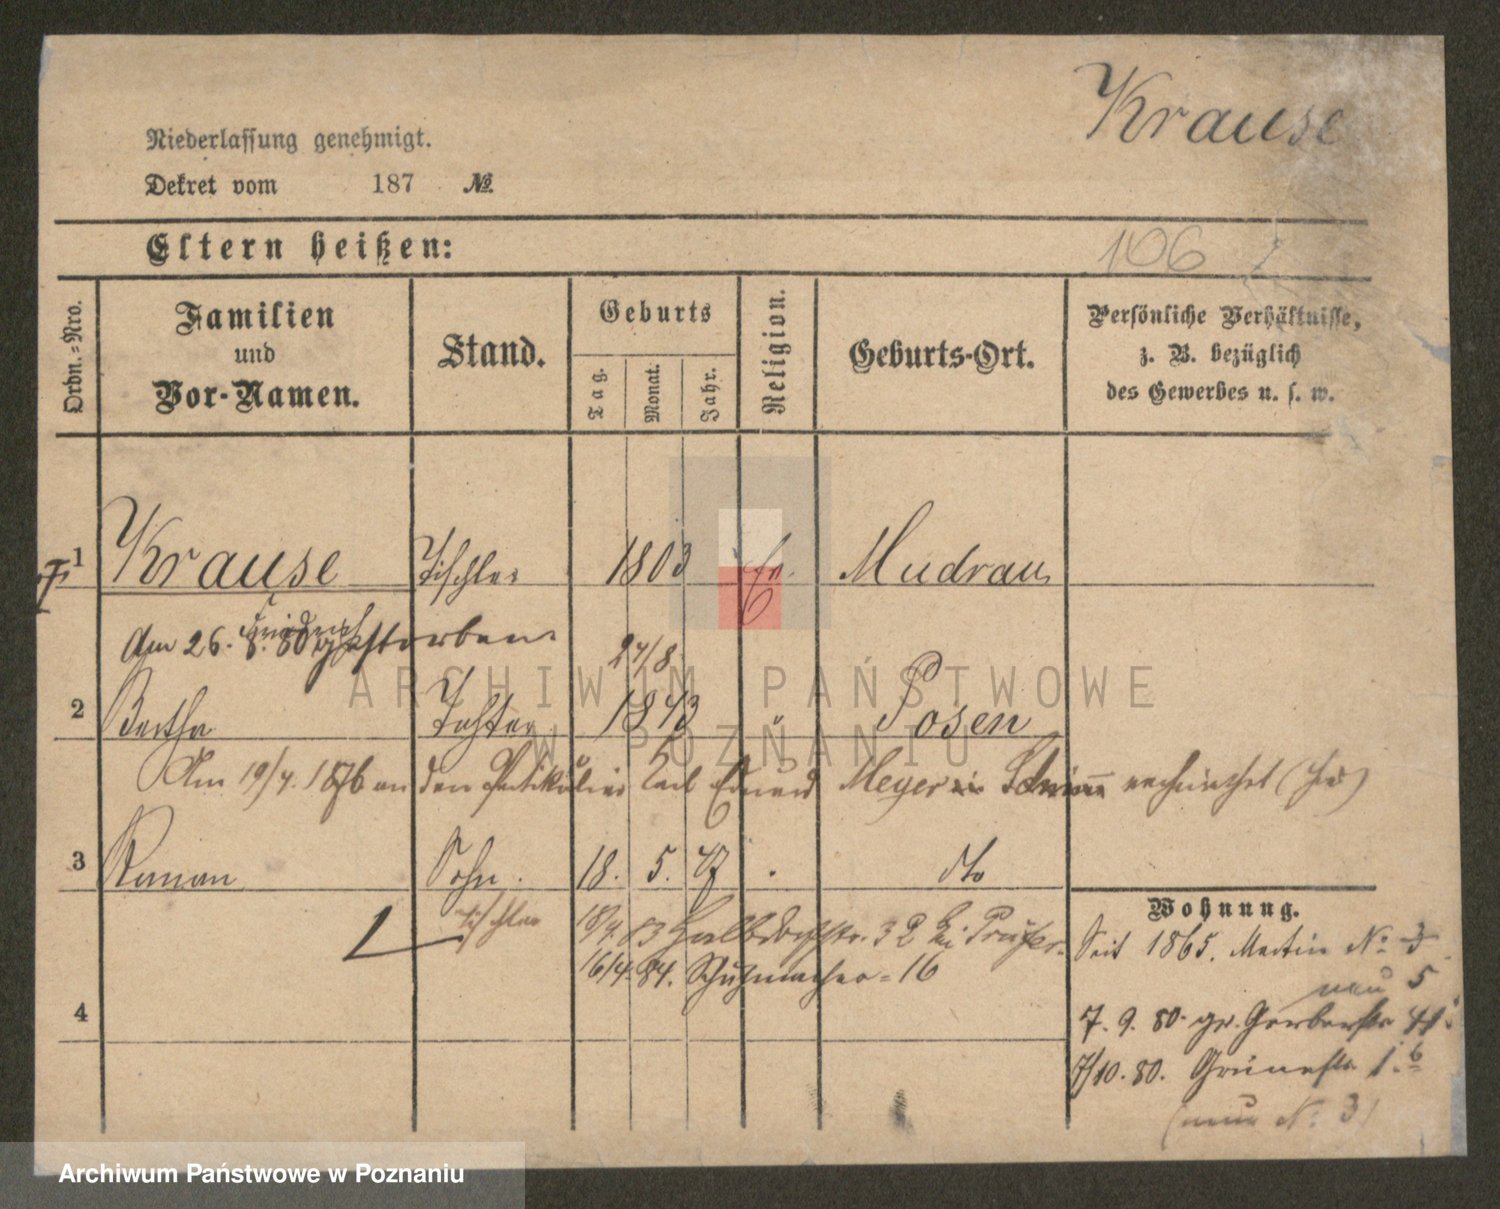 Krause
Niederlassung genehmigt.
Dekret vom 187 №
Eltern heißen:
106
Ordn.-Nro.
Familien und Vor-Namen.
Stand.
Geburts
Tag.
Monat.
Jahr.
Religion.
Geburts-Ort.
Persönliche Verhältnisse,
z. B. bezüglich
des Gewerbes u. s. w.
1 Krause Tischler 1803 Ev. Mudrau
Friedrich
Am 26. 8. 80 gestorben
27/8
2 Bertha Tochter 1843 " Posen
Am 19/4. 1876 an den Partikulier Karl Eduard Meyer in verheirathet
3 Roman Sohn. 18. 5. 47 dto
Tischler
18/9. 83 Halbdorfstr. 32 bei Prüfer.
16/4. 84. Schuhmacher-16
4
Wohnung.
Seit 1865. Martin No 3
neu 5
7. 9. 80. gr. Gerberstr 41
7/10. 80. Grünestr 1.
(neue No 3)
ARCHIWUM PAŃSTWOWE
W POZNANIU
Archiwum Państwowe w Poznaniu